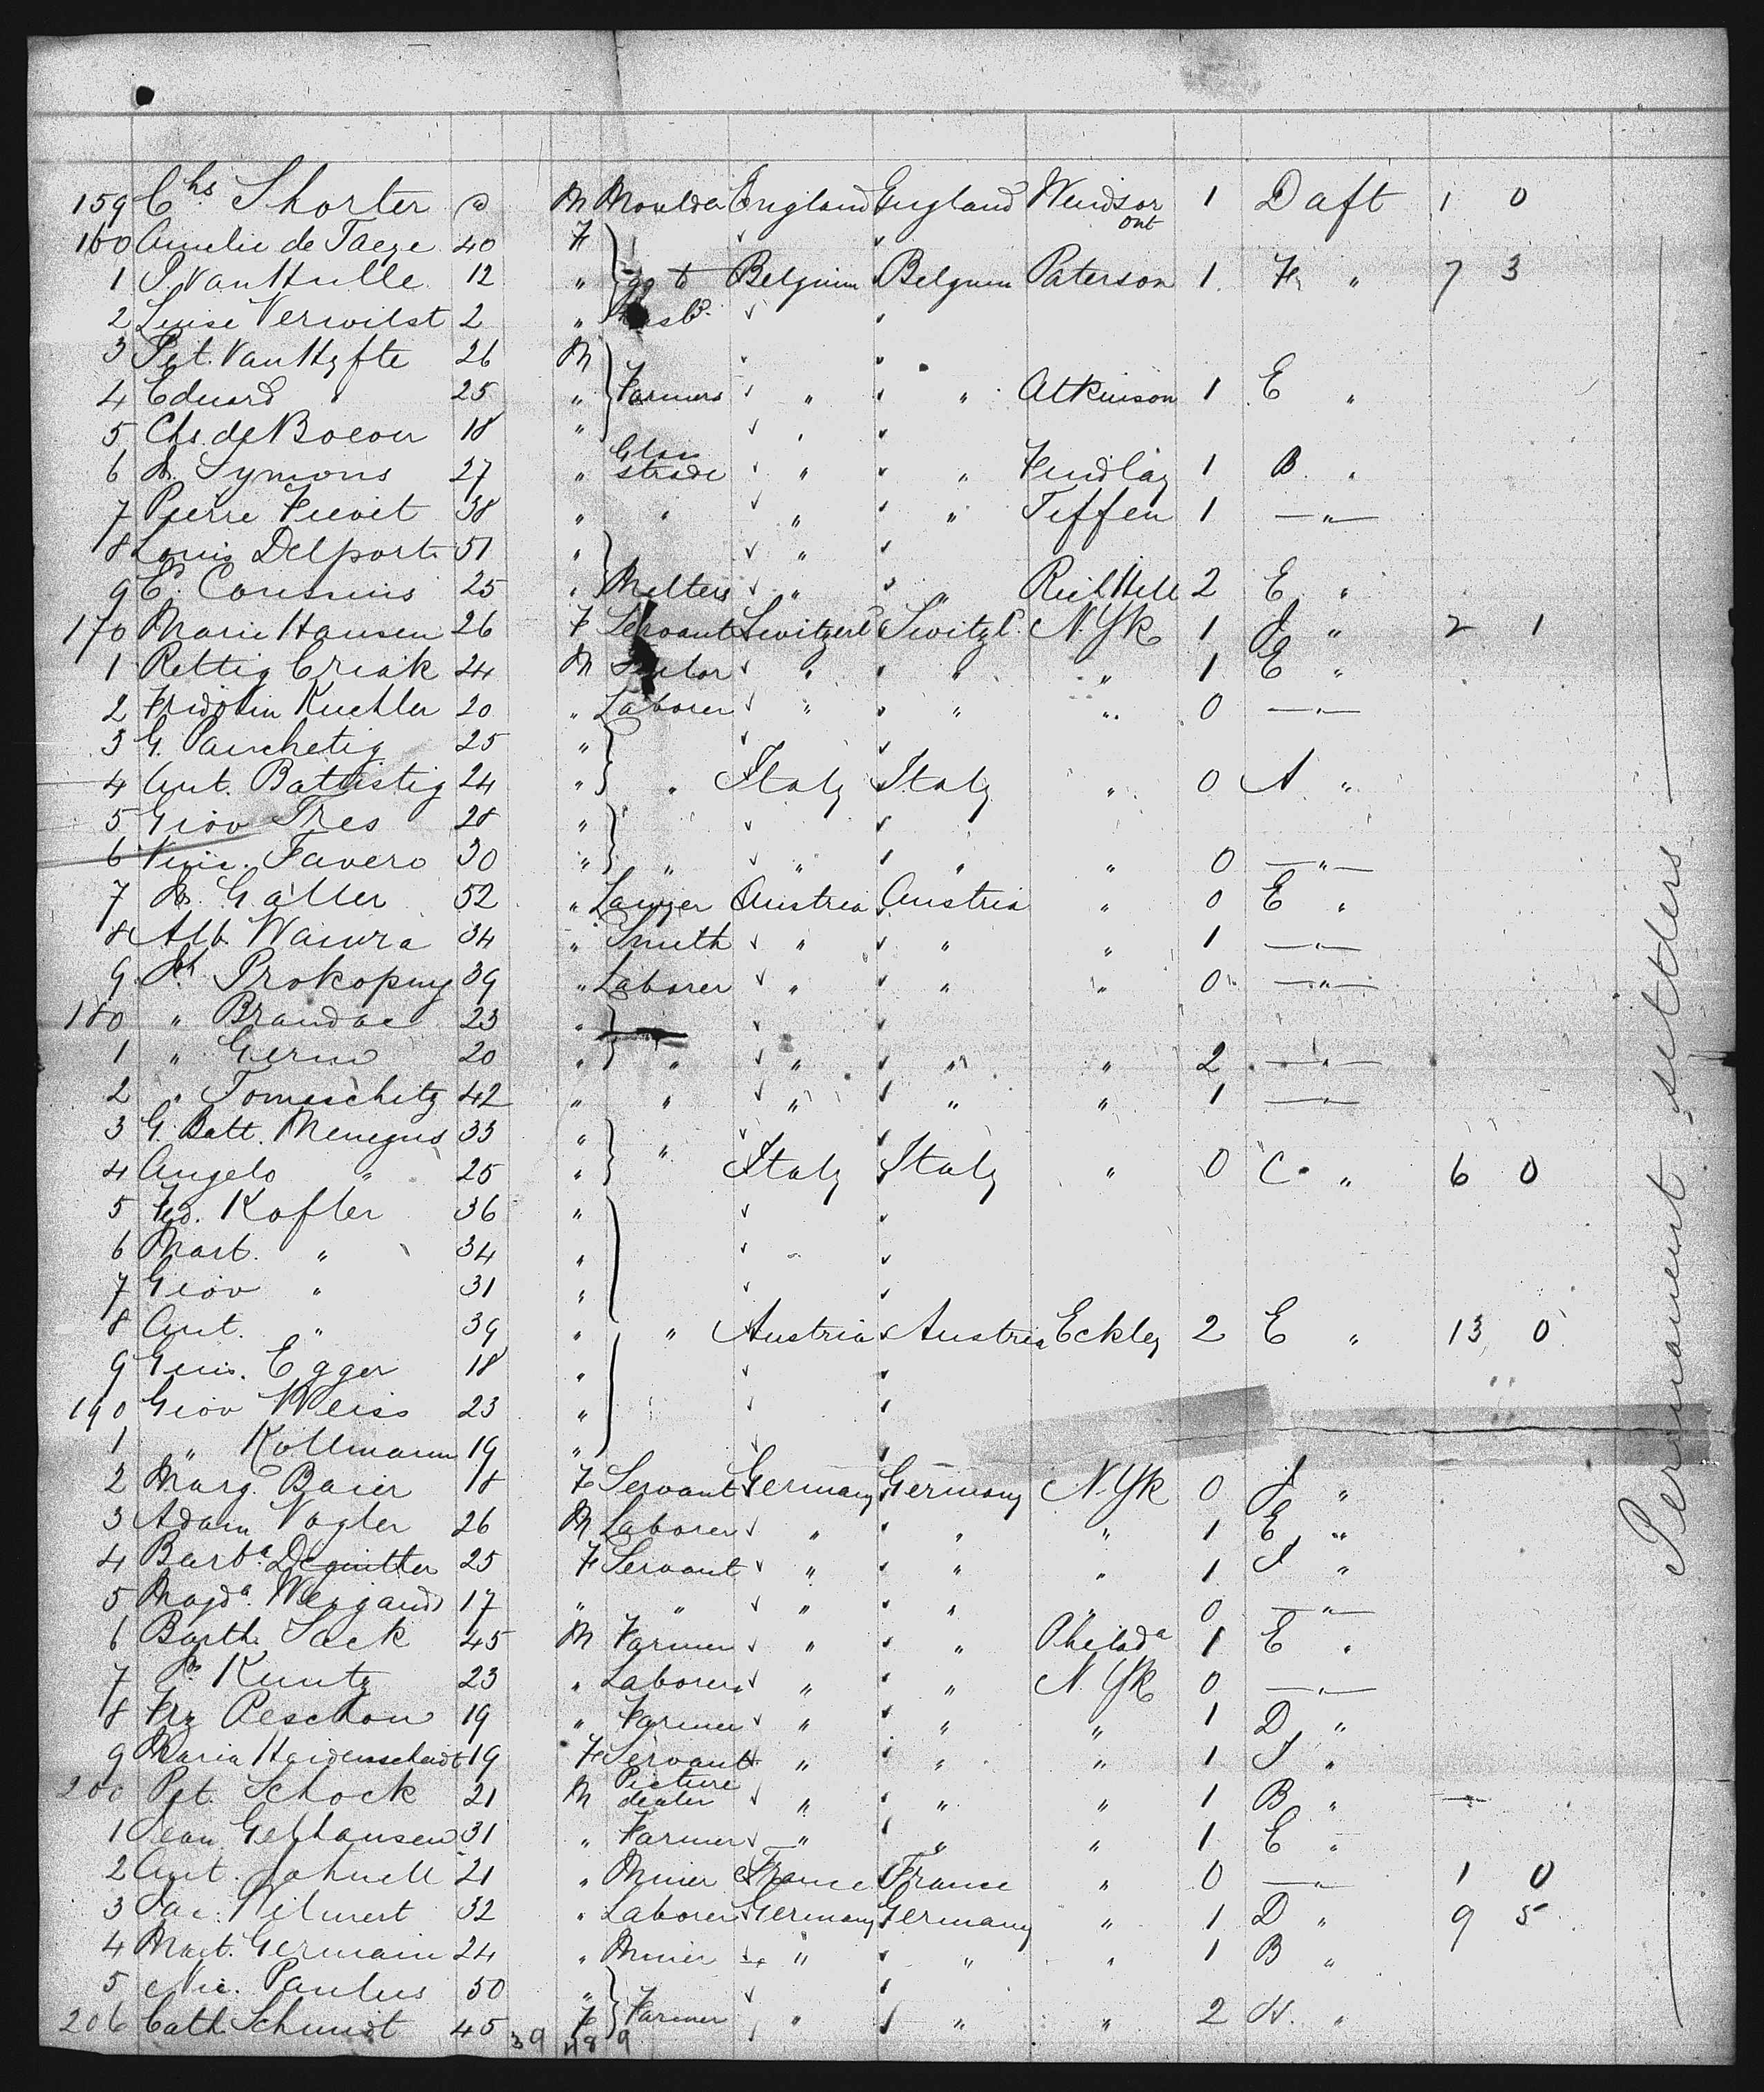 159 Chs Shorter M Moulder England England Windsor Ont 1 Daft 1 0
160 Amelie de Taeye 40 F
1 S. Van Hulle 12 " go to Belgium Belgium Paterson 1 F " 7 3
2 Luise Verwilst 2 " Husbd
3 Pet. Van Hyfte 26 M
4 Eduard " 25 " Farmers " " Atkinson 1 E "
5 Chs. de Boever 18 "
6 Symons 27 " Glass trade " " Findlay 1 B "
7 Pierre Fievet 38 " " " " Tiffen 1 — " —
8 Louis Delport 51 " "
9 Ed. Cousins 25 " Melters " " 2 E "
170 Marie Hansen 26 F Servant Switzerld Switzld N. Yk 1 J "
2 1
1 Rettig Criak 24 M " " " 1 E "
2 Fridolin Kuchler 20 " Laborer " " " 0 — " —
3 G. Panchetig 25 "
4 Ant. Battistig 24 " " Italy Italy " 0 A "
5 Giov Tres 28 "
6 Favero 30 " " " " " 0 — " —
7 Galler 52 " Lawyer Austria Austria " 0 E "
8 Alb. Wawra 34 " Smith " " " 1 — " —
9 Prokopny 39 " Laborer " " " 0 — " —
180 " Brandac 23 "
1 " Germ 20 " " " " " 2 — " —
2 " Tomaschitz 42 " " " " " 1 — " —
3 G. Batt. Menegus 33 "
4 Angelo " 25 " " Italy Italy " 0 C " 6 0
5 Kofler 36 "
6 Mart. " 34 "
7 Giov " 31 "
8 Ant. " 39 " " Austria Austria Eckley 2 E " 13 0
9 Egger 18 "
190 Giov Weiss 23 "
1 " Kollmann 19 "
2 Marg. Baier 18 F Servant Germany Germany N. Yk 0 J "
3 Adam Vogler 26 M Laborer " " " 1 E "
4 Barba. 25 F Servant " " " 1 J "
5 Magda. Weigand 17 " " " " " 0 — " —
6 Barth. Sack 45 M Farmer " " Philada 1 E "
7 Kuntz 23 " Laborer " " N. Yk 0 — " —
8 Frz Peschon 19 " Farmer " " " 1 D "
9 Maria Haidenscheidt 19 F Servant " " " 1 J "
200 Pet. Schock 21 M Picture dealer " " " 1 B "
1 Jean Gelhausen 31 " Farmer " " " 1 E "
2 Ant. 21 " Miner France France " 0 — " — 1 0
3 Jac. Wilmert 32 " Laborer Germany Germany " 1 D " 9 5
4 Mart. Germain 24 " Miner " " " 1 B "
5 Nic. Paulus 50 "
206 Cath. Schmidt 45 F Farmer " " " 2 H. "
39 48 9
Permanent settlers